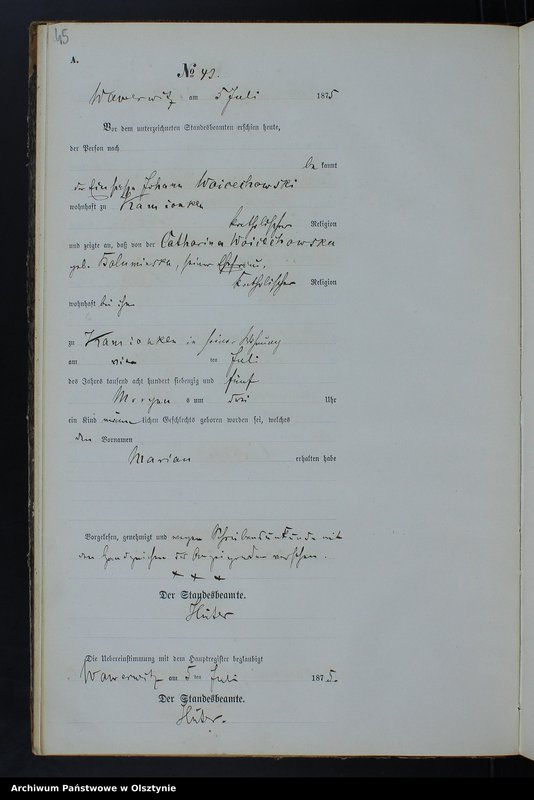 45
A.
No 49.
Wawerwitz am 5 Juli 1875
Vor dem unterzeichneten Standesbeamten erschien heute,
der Person nach
be kannt
der Johann Woicechowski
wohnhaft zu Kamionken
katholischer Religion
und zeigte an, daß von der Catharina Woicechowska
geb. seiner Ehefrau,
katholischer Religion
wohnhaft bei ihm
zu Kamionken in seiner Wohnung
am vier ten Juli
des Jahres tausend acht hundert siebenzig und fünf
Morgen s um drei Uhr
ein Kind männ lichen Geschlechts geboren worden sei, welches
den Vornamen
Marian erhalten habe
Vorgelesen, genehmigt und wegen Schreibensunkunde mit
den Handzeichen des Anzeigenden versehen.
+ + +
Der Standesbeamte.
Hüter
Die Uebereinstimmung mit dem Hauptregister beglaubigt
Wawerwitz am 5 ten Juli 1875.
Der Standesbeamte.
Hüter.
Archiwum Państwowe w Olsztynie